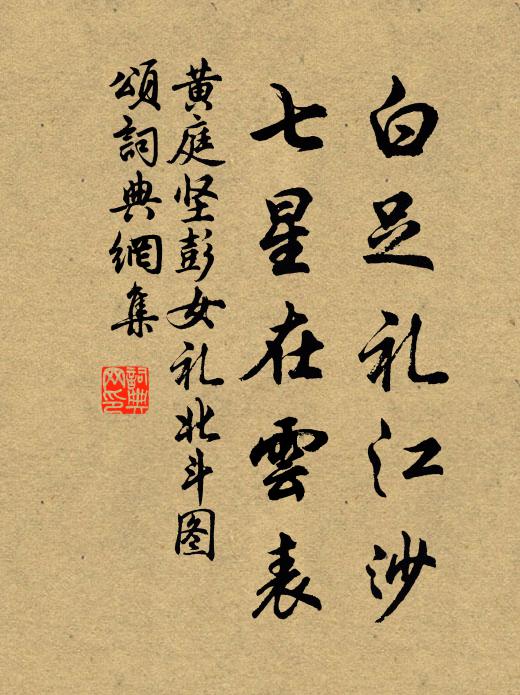 白足礼江沙
七星在雲表
黄庭坚彭女礼北斗图
頌詞典網集
詞典網印